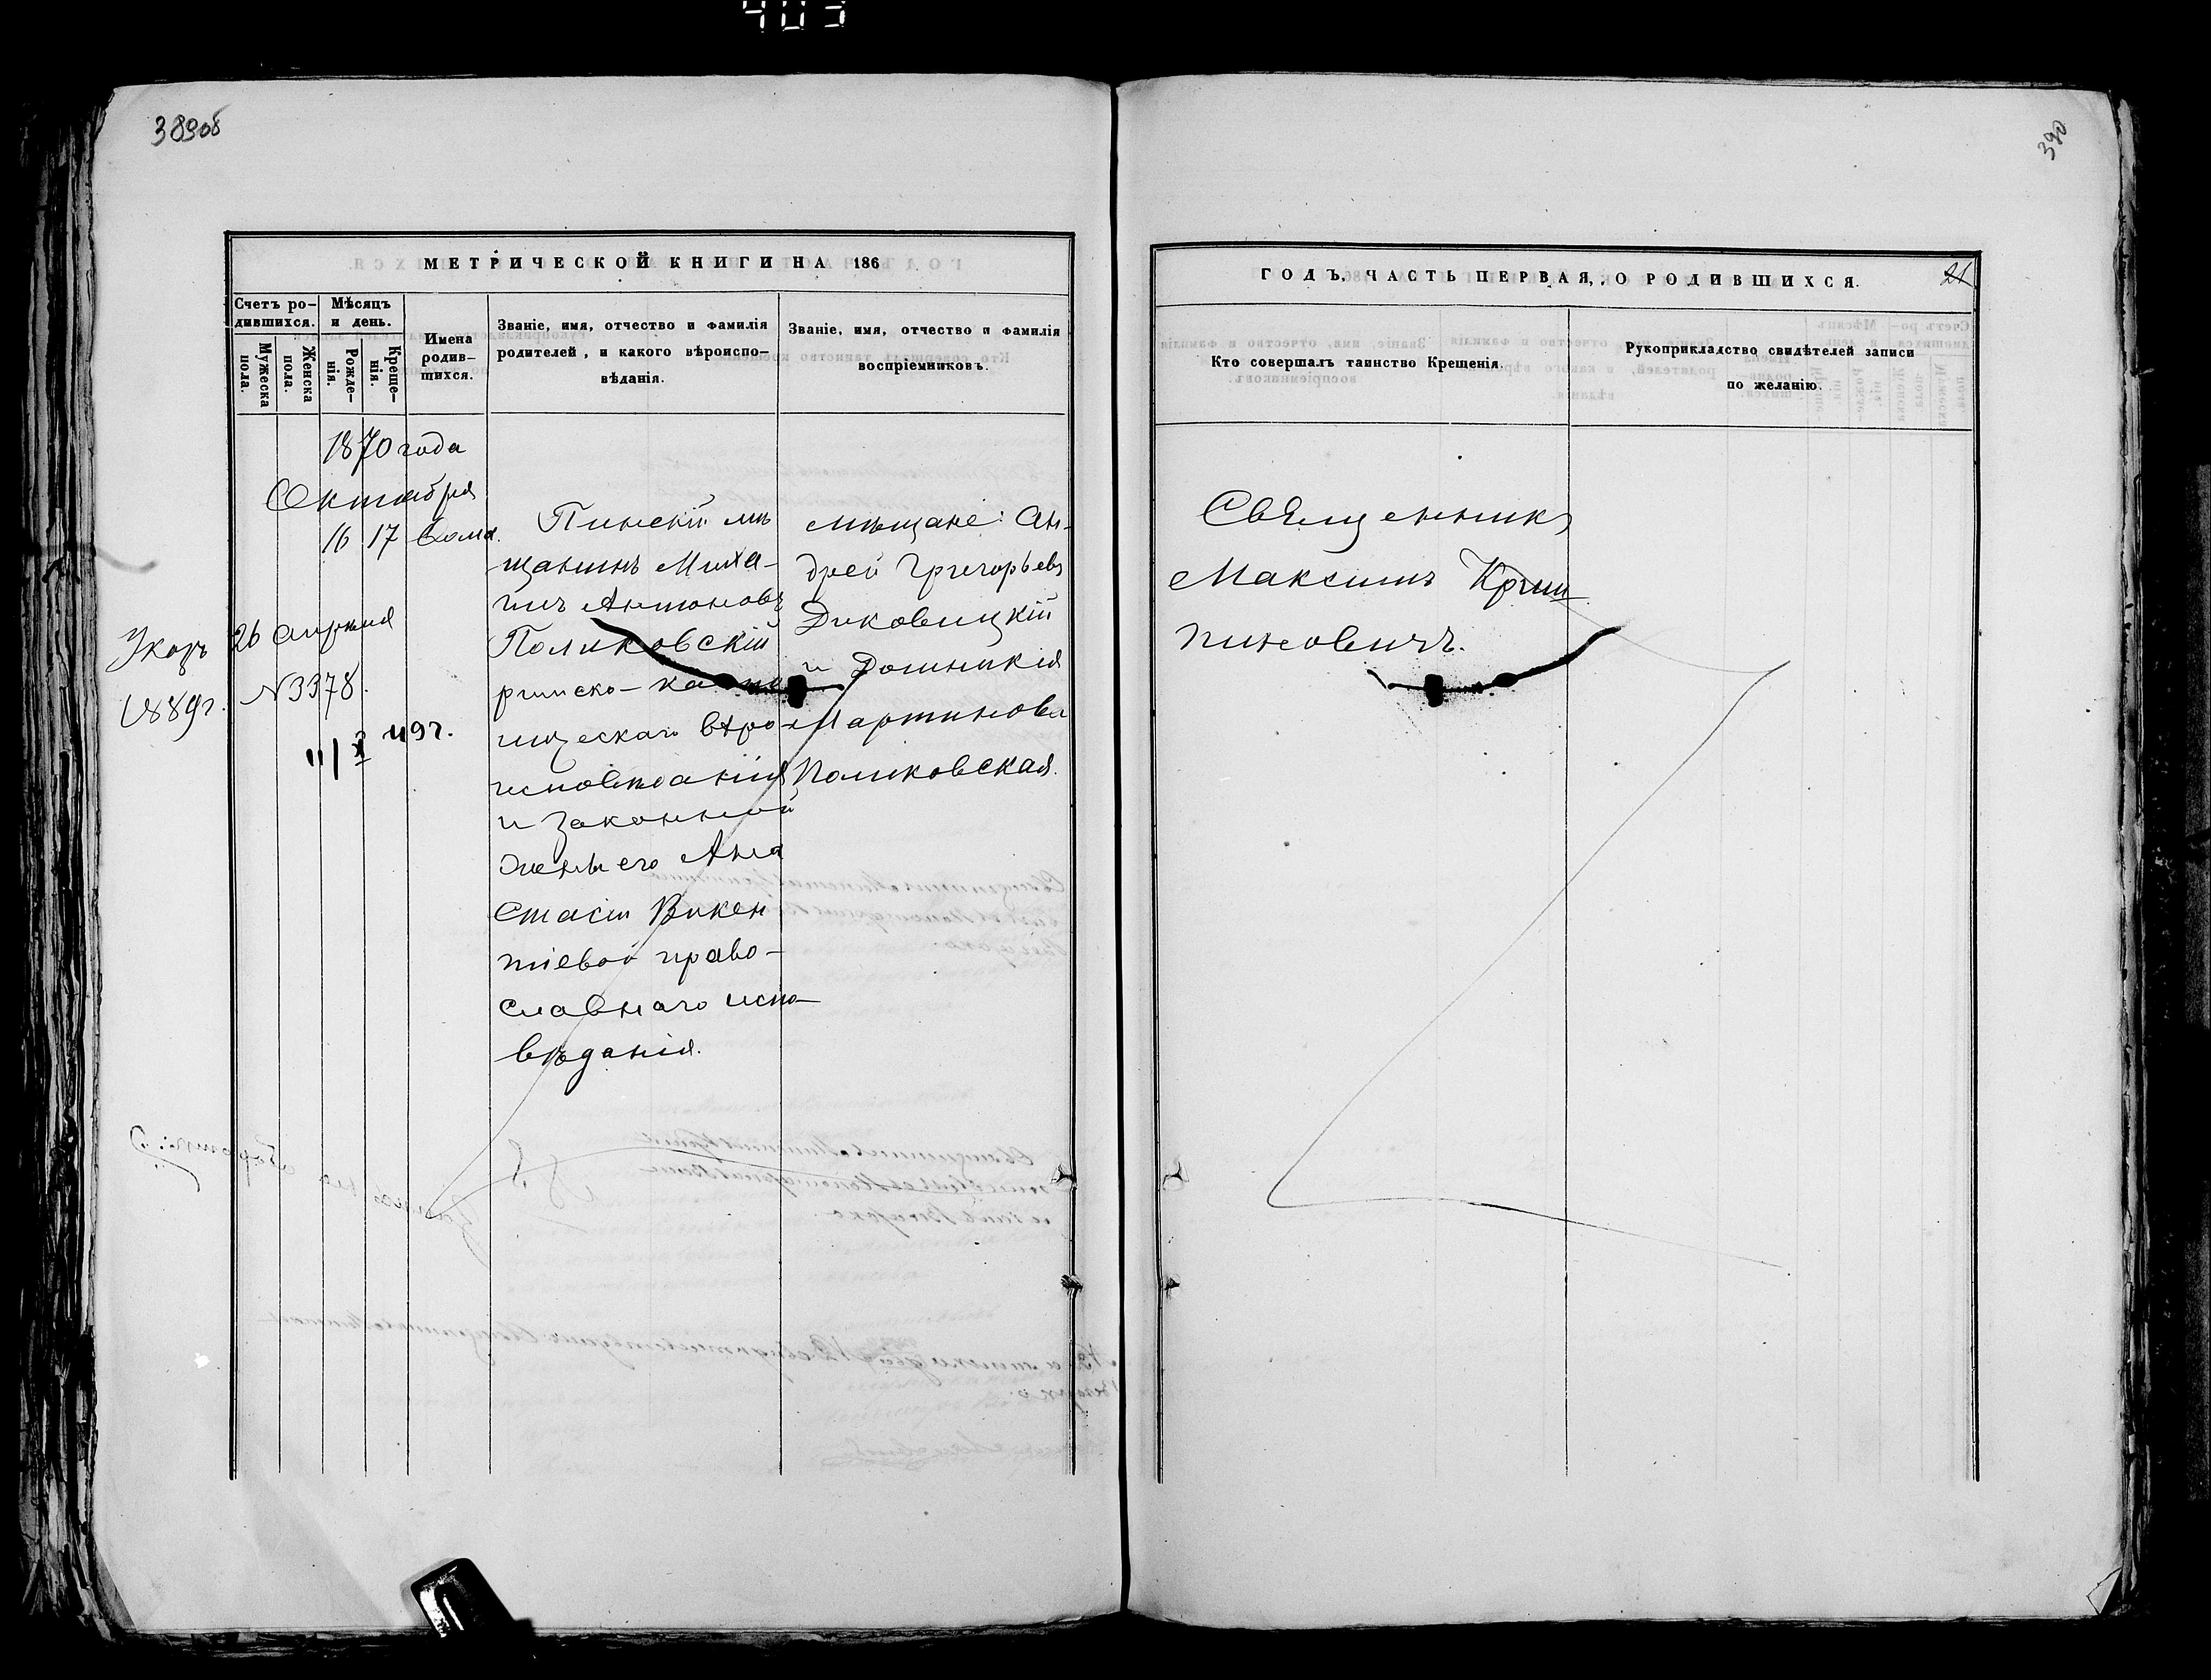 403
389об
390
МЕТРИЧЕСКОЙ КНИГИ НА 186
ГОДЪ, ЧАСТЬ ПЕРВАЯ, О РОДИВШИХСЯ.
21
Счетъ ро-
дившихся.
Мужеска
пола.
Женска
пола.
Мѣсяцъ
и день.
Рожде-
нія.
Креще-
нія.
Имена
родив-
шихся.
Званіе, имя, отчество и фамилія
родителей, и какого вѣроиспо-
вѣданія.
Званіе, имя, отчество и фамилія
воспріемниковъ.
Кто совершалъ таинство Крещенія.
Рукоприкладство свидѣтелей записи
по желанію.
1870 года
Октября
16 17 Ѳома.
Указъ 26 Апрѣля
1889г. N3378.
11/X 49г.
Пинскій мѣ
щанинъ Миха-
илъ Антоновъ
Поликовскій
римско-като
лическаго вѣро-
исповѣданія
и законной
жены его Ана
стасіи Викен
тіевой право-
славнаго испо-
вѣданія.
мѣщане: Ан-
дрей Григорьевъ
Диковицкій
и Доминикія
Мартинова
Поликовская.
Священникъ
Максимъ Крип
пиновичъ.